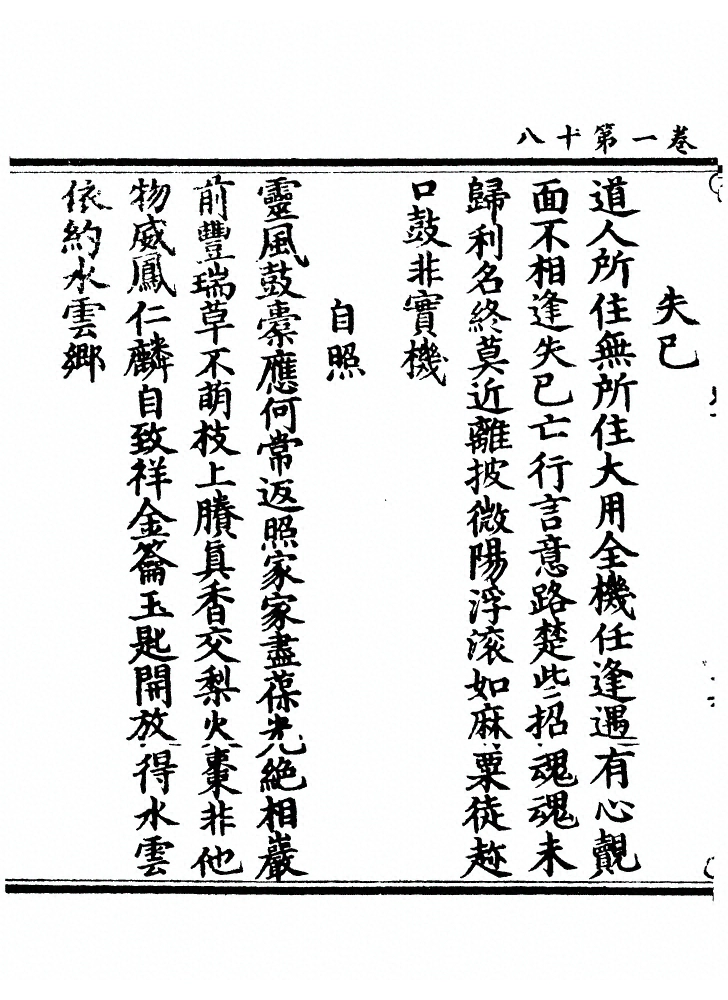 卷一第十八
失己
道人所住無所住大用全機任逢遇有心覿
面不相逢失己亡行言意路楚些招魂魂未
歸利名終莫近離披微陽浮滚如麻粟徒趂
口鼓非實機
自照
靈風鼓橐應何常返照家家盡葆光絶相巖
前豐瑞草不萌枝上賸眞香交梨火棗非他
物威鳳仁麟自致祥金籥玉匙開放得水雲
依約水雲鄉